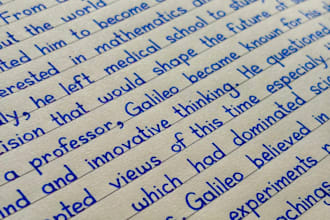 From
out the world
ted him to become
erested in mathematics and
ly, he left medical school to stu
ision that would shape the future.
a professor, Galileo became known for his
and innovative thinking. He questioned
pted views of this time especially
which had dominated sci
Galileo believed in
experiments